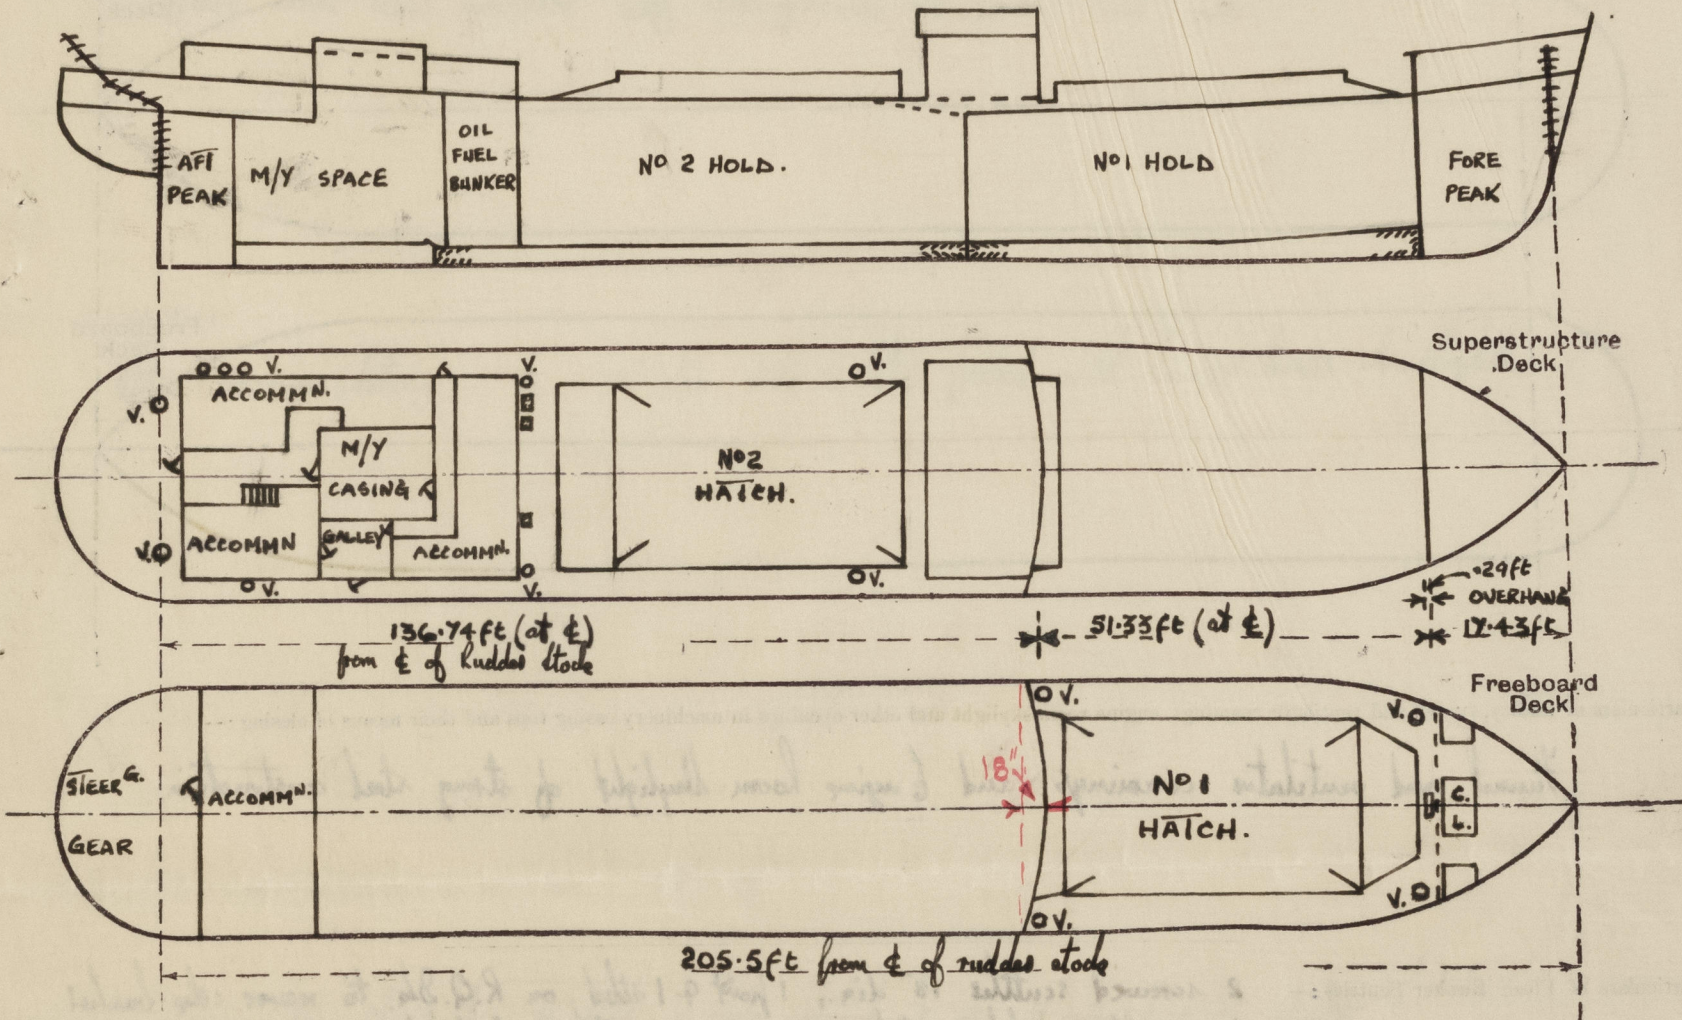 AFT
PEAK
M/Y SPACE
OIL
FUEL
BUNKER
No 2 HOLD.
No 1 HOLD
FORE
PEAK
Superstructure
Deck
V.
V.
V.
ACCOMMN.
V.
M/Y
CASING
No 2
HATCH.
V.
ACCOMMN
GALLEY
ACCOMMN.
V.
V.
V.
.29ft
OVERHANG
136.74ft (at ℄)
from ℄ of Rudder Stock
51.33ft (at ℄)
17.43ft
Freeboard
Deck
V.
V.
STEERG.
GEAR
ACCOMMN.
18"
No 1
HATCH.
C.
L.
V.
V.
205.5ft from ℄ of rudder stock